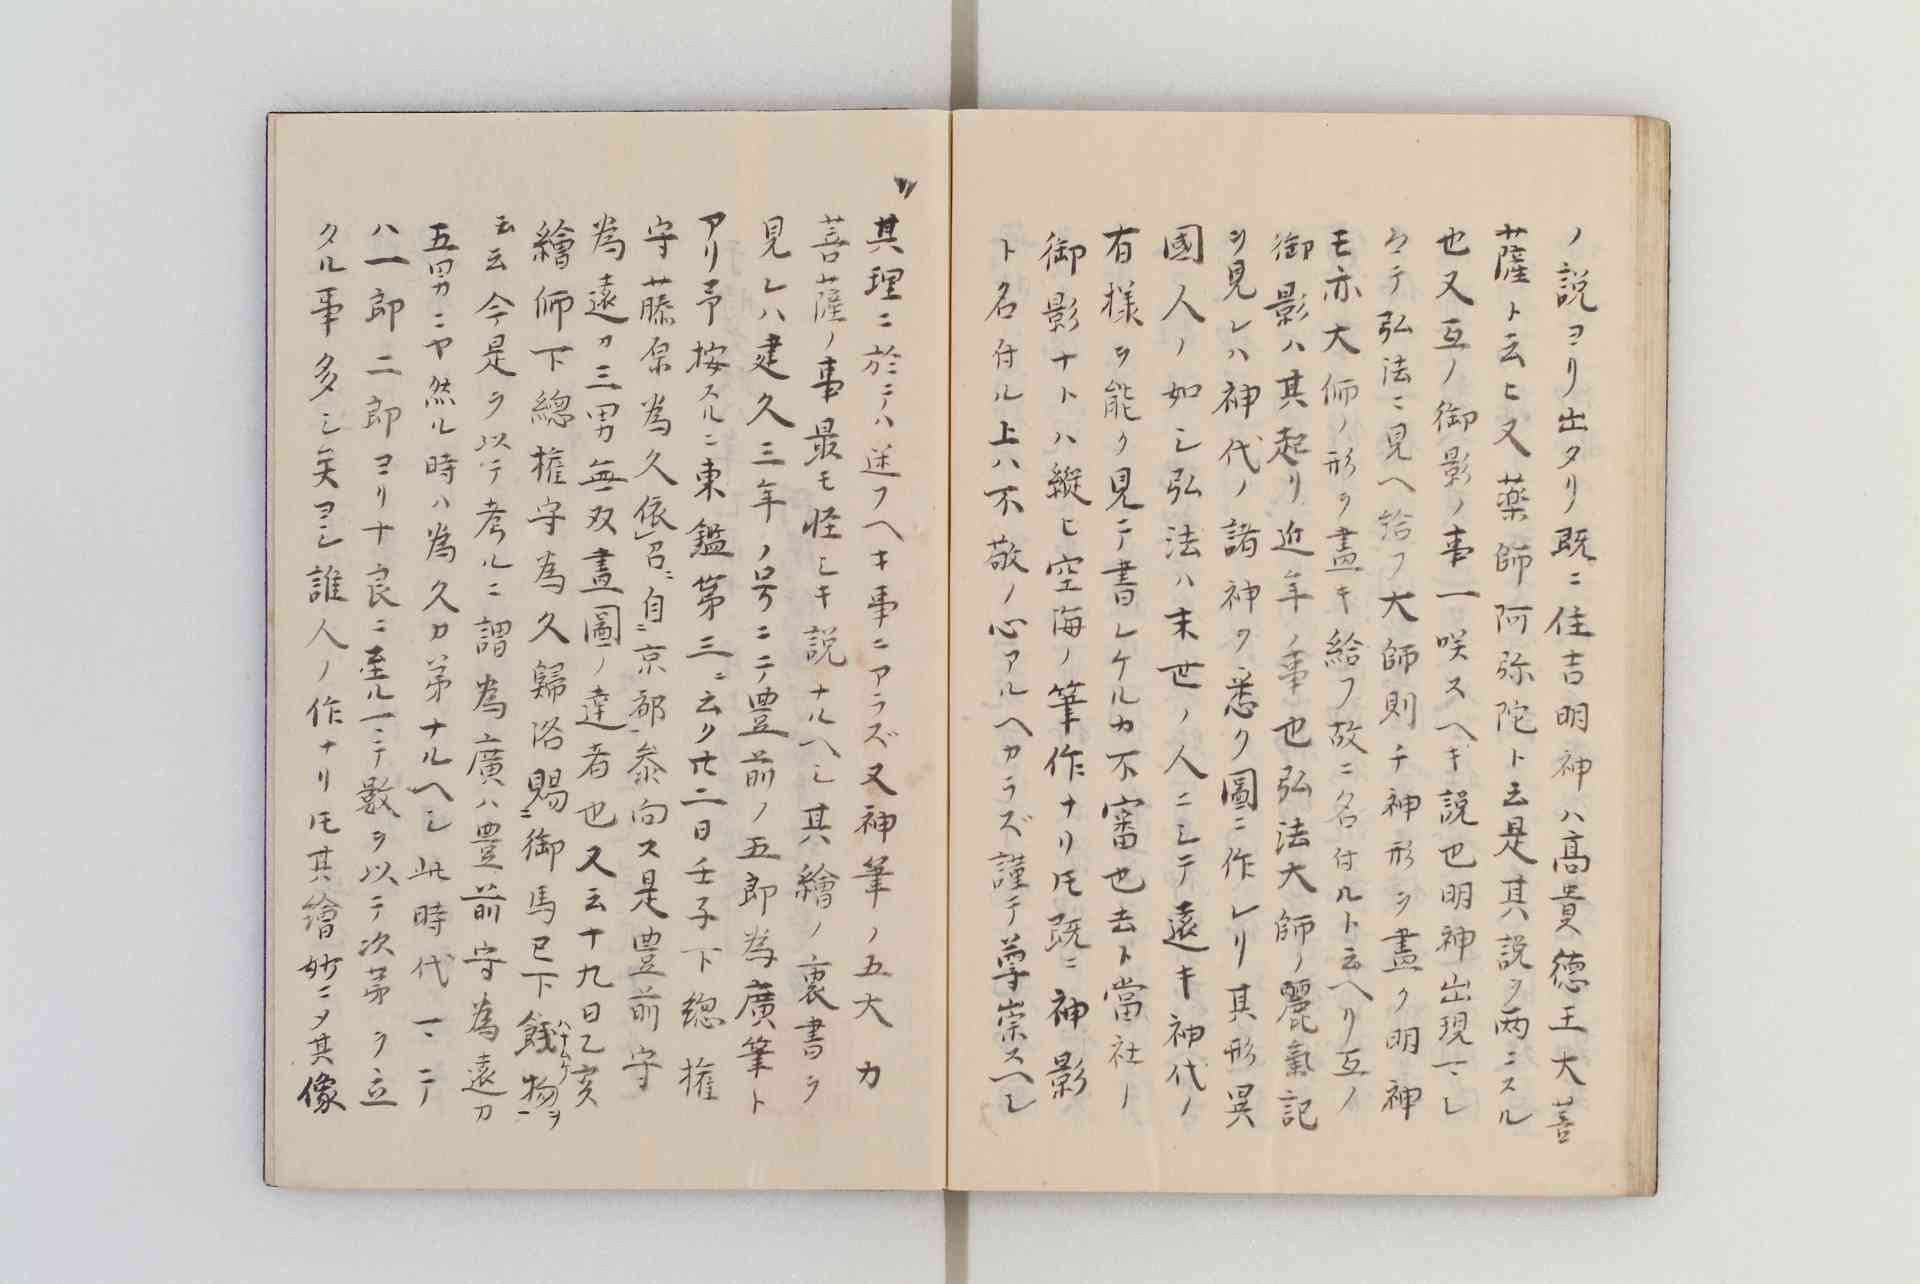 ノ説ヨリ出タリ既ニ住吉明神ハ高貴徳王大菩
薩ト云ヒ又薬師阿弥陀ト云是其説ヲ両ニスル
也又互ノ御影ノ事一咲スヘキ説也明神出現マシ
マテ弘法ニ見ヘ給フ大師則チ神形ヲ畫ク明神
モ亦大師ノ形ヲ畫キ給フ故ニ名付ルト云ヘリ互ノ
御影ハ其起リ近年ノ事也弘法大師ノ麗氣記
ヲ見レハ神代ノ諸神ヲ悉ク圖ニ作レリ其形異
國人ノ如シ弘法ハ末世ノ人ニシテ遠キ神代ノ
有様ヲ能ク見テ書レケルカ不審也去ト當社ノ
御影ナトハ縦ヒ空海ノ筆作ナリ𪜈既ニ神影
ト名付ル上ハ不敬ノ心アルヘカラズ謹テ尊崇スヘシ
其理ニ於テハ迷フヘキ事ニアラズ又神筆ノ五大力
菩薩ノ事最モ怪シキ説ナルヘシ其繪ノ裏書ヲ
見レハ建久三年ノ号ニテ豊前ノ五郎為廣筆ト
アリ予按スルニ東鑑第三ニ云ク廿二日壬子下總権
守藤原為久依召ニ自ニ京都参向ス是豊前守
為遠カ三男無双畫圖ノ達者也又云十九日乙亥
繪師下總権守為久歸洛賜ニ御馬已下餞物ヲハナムケ
云云今是ヲ以テ考ルニ謂為廣ハ豊前守為遠カ
五男ニヤ然ル時ハ為久カ弟ナルヘシ此時代マテ
ハ一郎二郎ヨリ十良ニ至ルマテ數ヲ以テ次第ヲ立
タル事多シ矣ヨシ誰人ノ作ナリ𪜈其繪妙ニメ其像